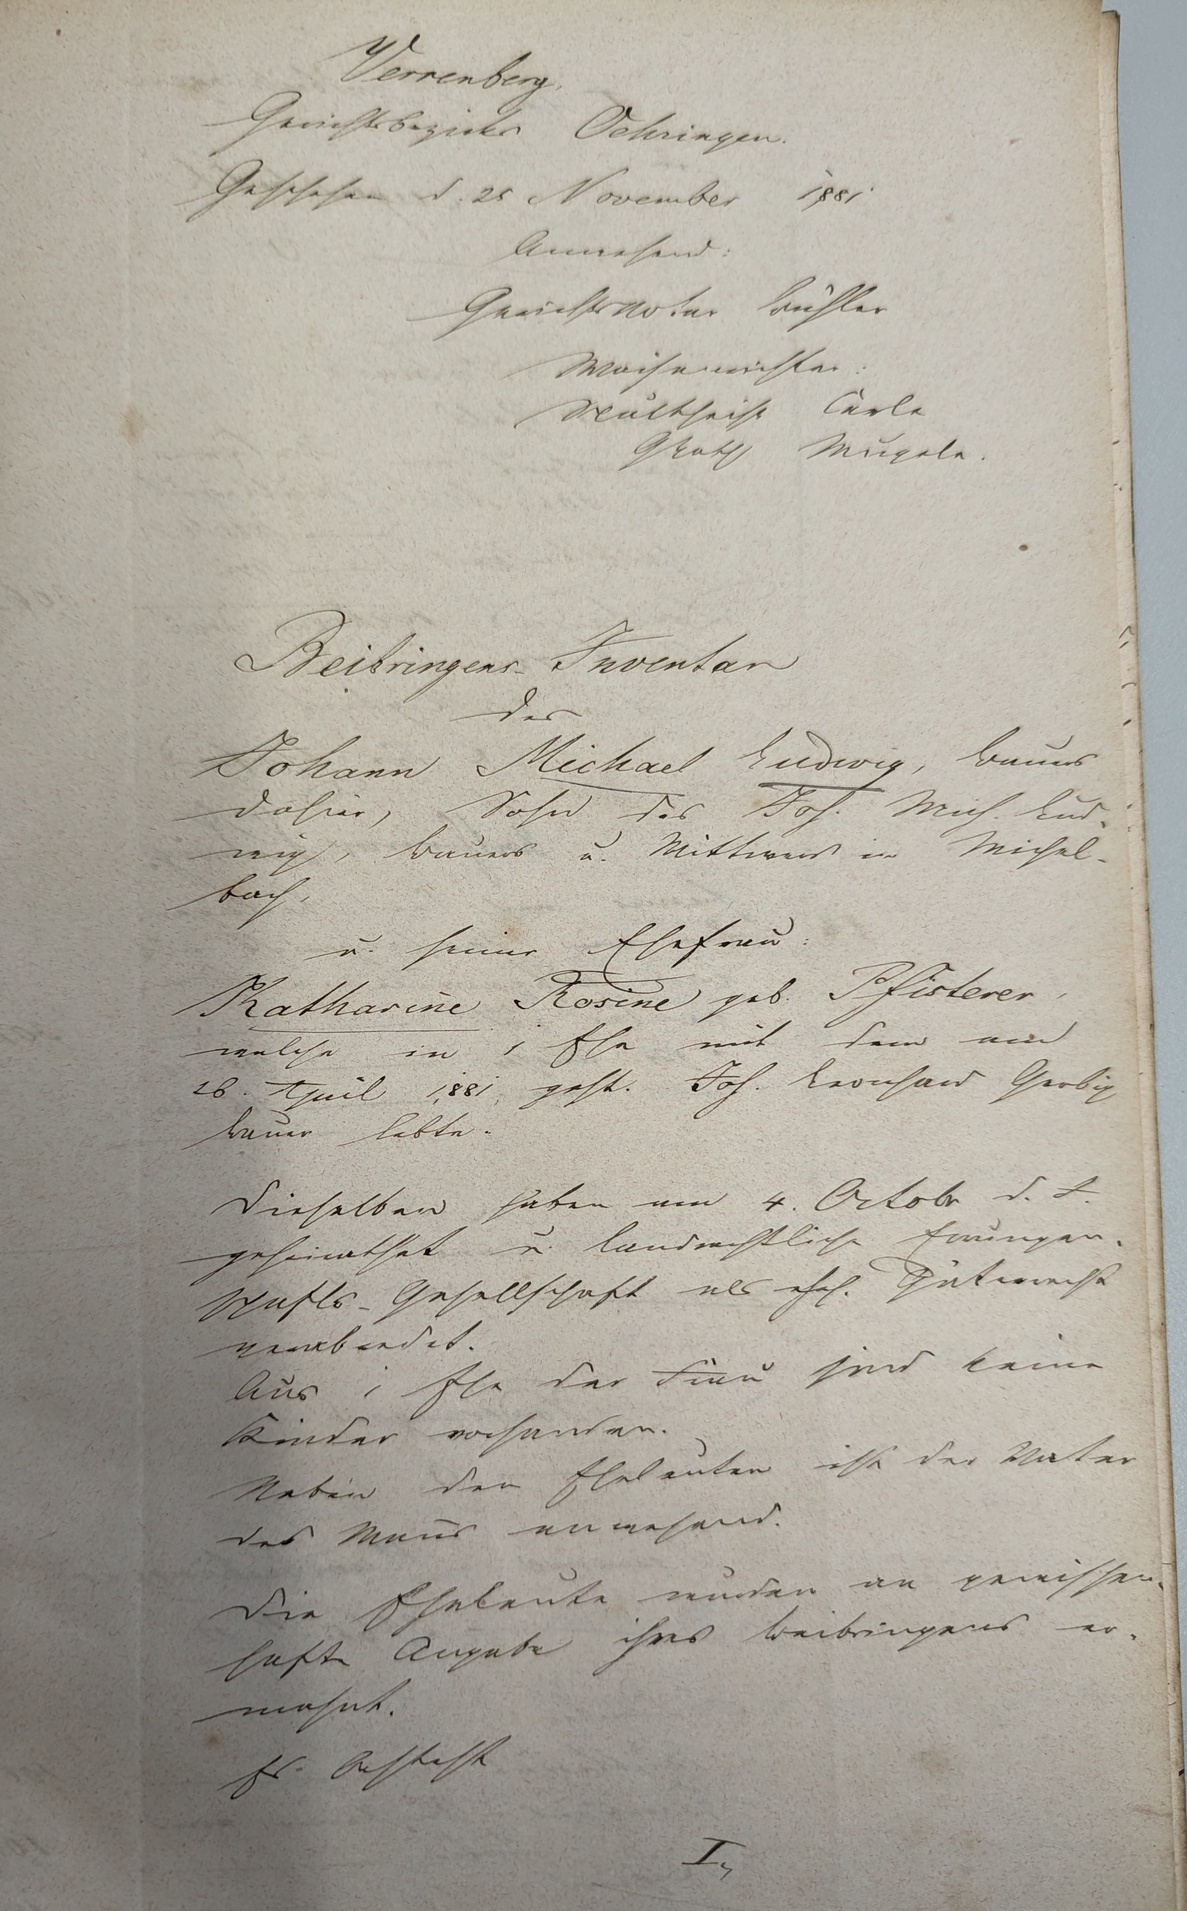 Verrenberg.
Gerichtsbezirks Oehringen.
Geschehen d. 25 November 1881
Anwesend:
Gerichtsnotar Bühler
Waisenrichter:
Schultheiß Carle
GRath Mugele.
Beibringens-Inventar
des
Johann Michael Ludwig, Bauers
dahier, Sohn des Joh. Mich. Lud-
wig, Bauers u. Wittwers in Michel-
bach,
u. seiner Ehefrau:
Katharine Rosine geb. Pfisterer,
welche in 1 Ehe mit dem am
26. April 1881 gest. Joh. Leonhard
Bauer lebte.
Dieselben haben am 4. Octobr d. J.
geheirathet u. landrechtliche Errungen-
schafts-Gesellschaft als ehel. Güterrecht
verabredet.
Aus 1 Ehe der Frau sind keine
Kinder vorhanden.
Neben den Eheleuten ist der Vater
des Manns anwesend.
Die Eheleute wurden an gewissen-
hafte Angabe ihres Beibringens er-
mahnt.
Es besteht
I,